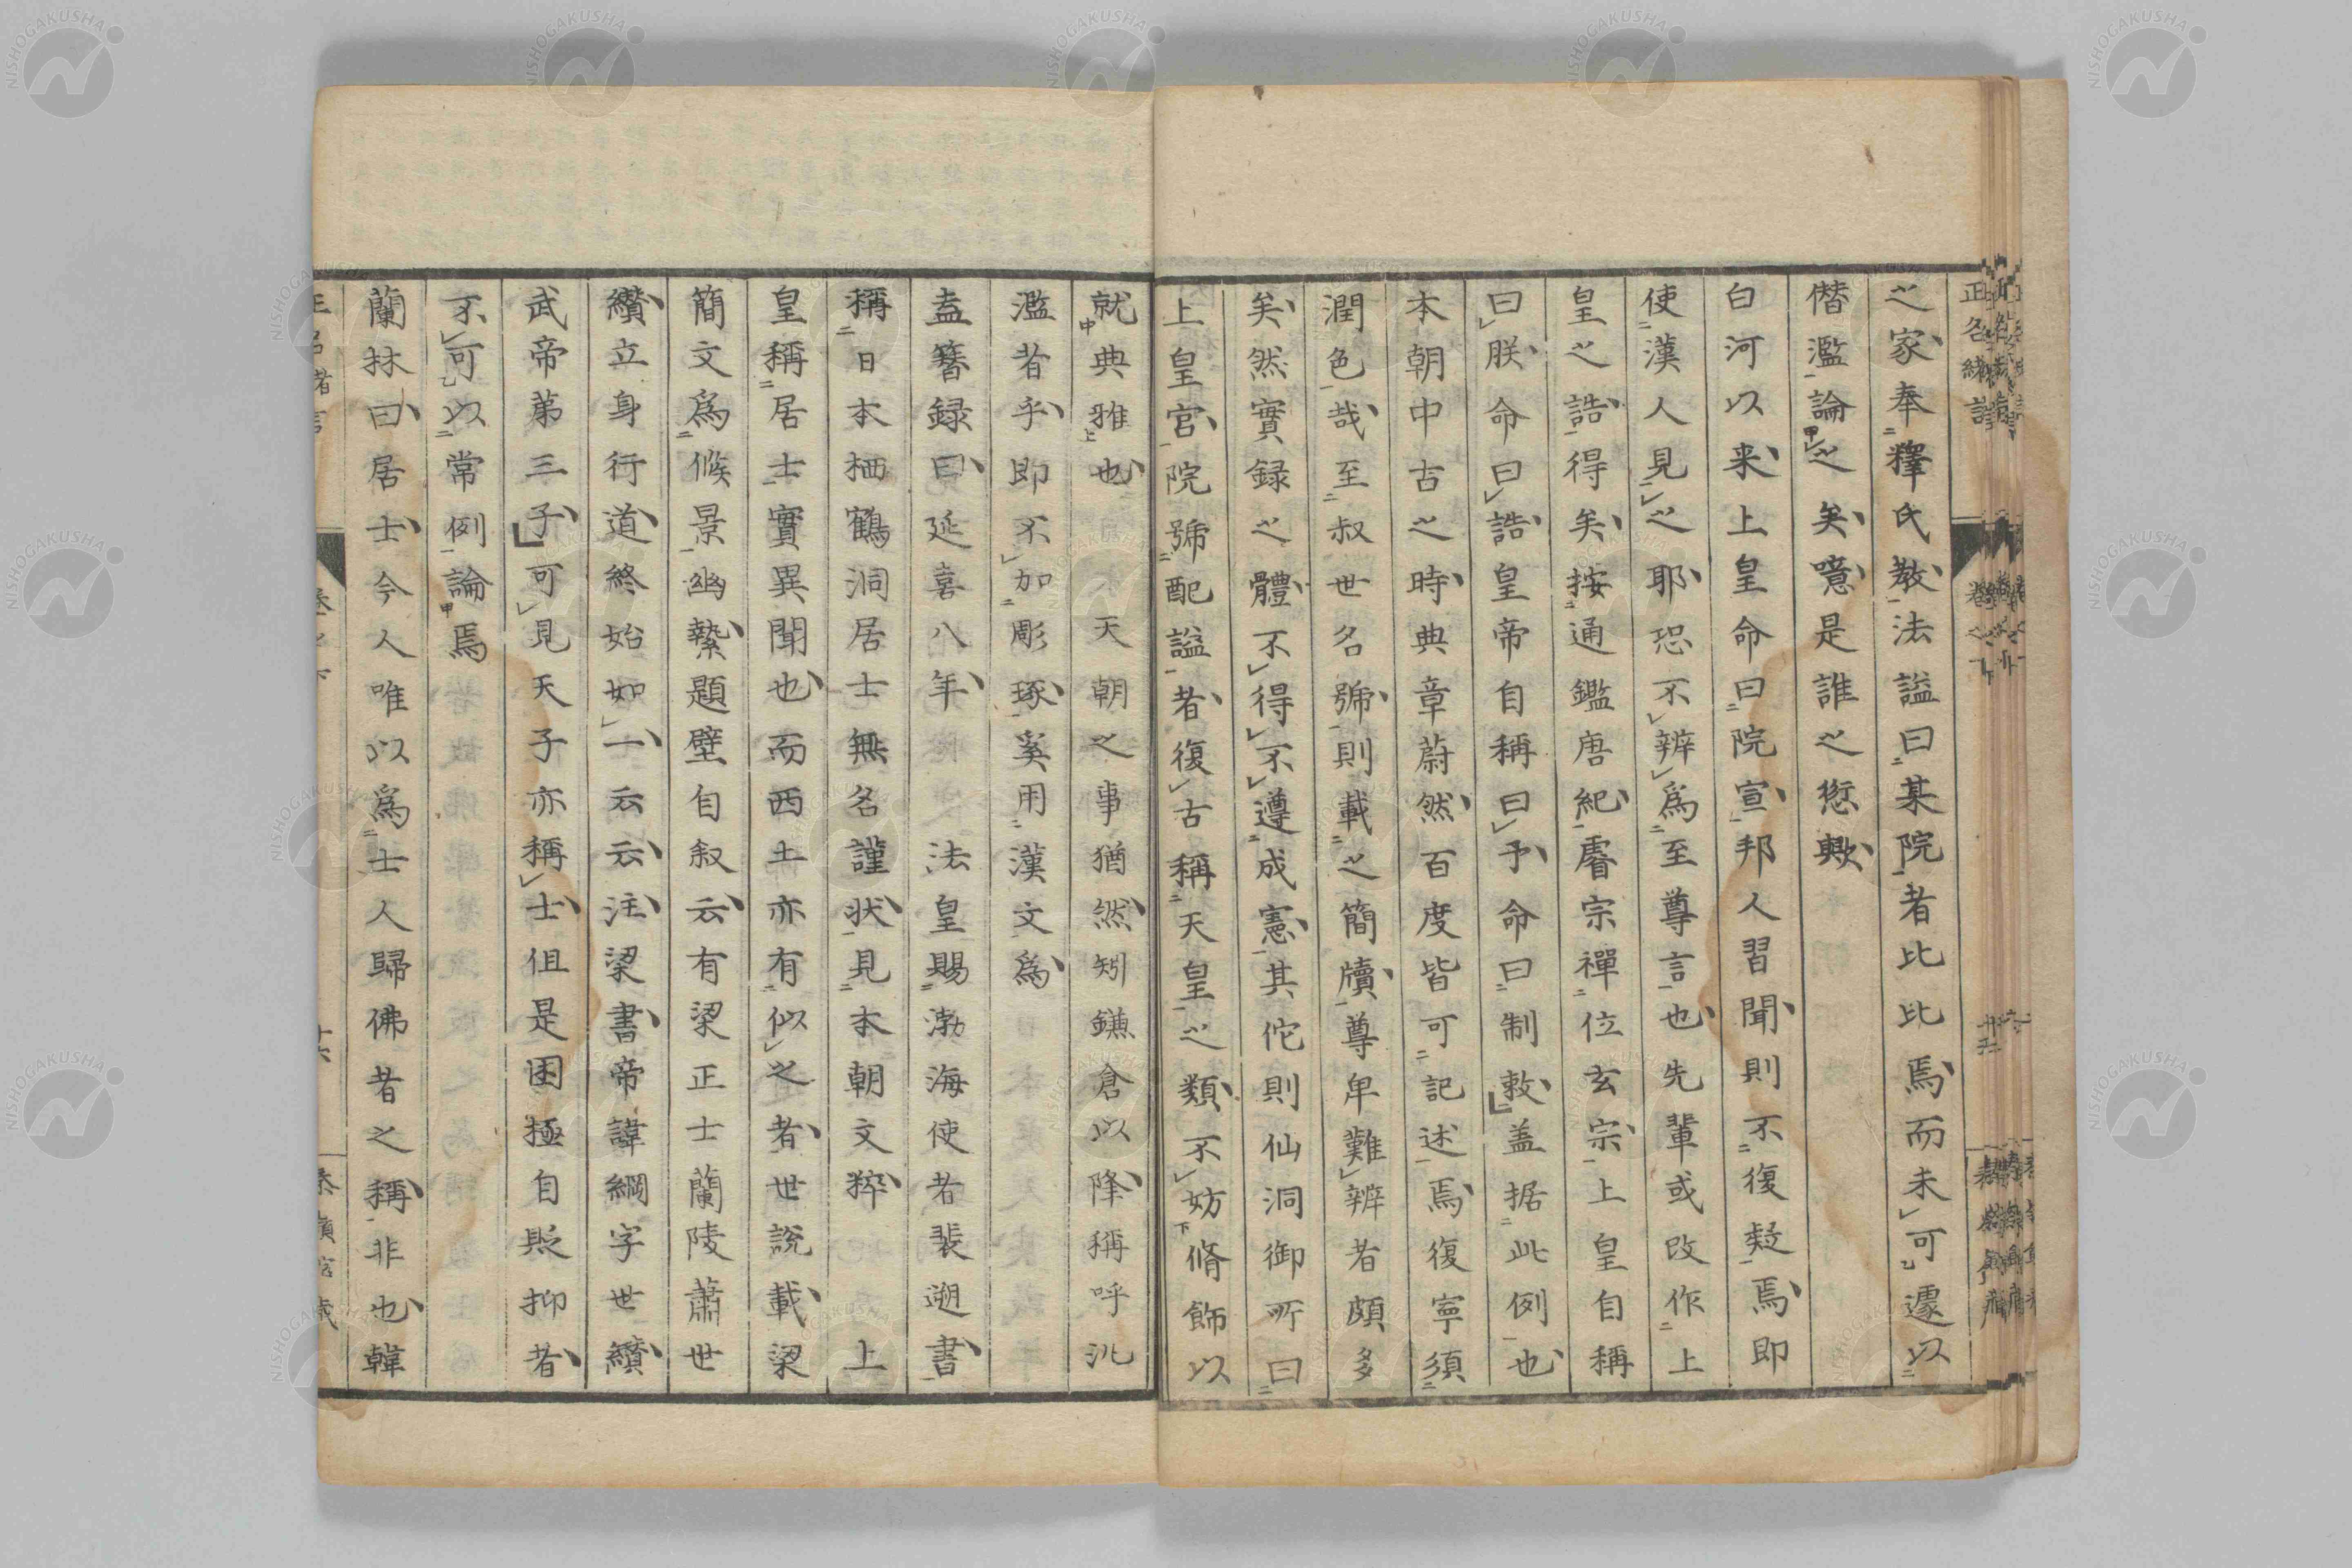 之家奉釋氏教法謚曰某院者比比焉而未可遽以
僭濫論之矣噫是誰之愆歟
白河以来上皇命曰院宣邦人習聞則不復疑焉即
使漢人見之耶恐不辨爲至尊言也先輩或改作上
皇之誥得矣按通鑑唐紀睿宗禪位玄宗上皇自稱
曰朕命曰誥皇帝自稱曰予命曰制敕盖据此例也
本朝中古之時典章蔚然百度皆可記述焉復寧須
潤色哉至叔世名號則載之簡牘尊卑難辨者頗多
矣然實録之體不得不遵成憲其佗則仙洞御所曰
上皇宮院號配謚者復古稱天皇之類不妨脩飾以
就典雅也天朝之事猶然矧鎌倉以降稱呼沘
濫者乎即不加彫琢奚用漢文爲
盍簪録曰延喜八年法皇賜渤海使者裴遡書
稱日本栖鶴洞居士無名謹状見本朝文粹上
皇稱居士實異聞也而西土亦有似之者世説載梁
簡文爲候景幽縶題壁自叙云有梁正士蘭陵蕭世
纘立身行道終始如一云云注梁書帝諱綱字世纘
武帝苐三子可見天子亦稱士但是困極自貶抑者
不可以常例論焉
蘭林曰居士今人唯以爲士人歸佛者之稱非也韓